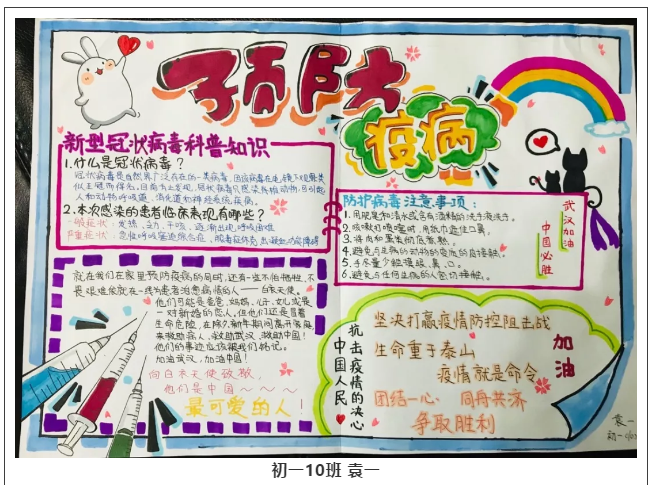 预防
疫病
新型冠状病毒科普知识
1.什么是冠状病毒？
冠状病毒是自然界广泛存在的一类病毒，因该病毒在电镜下观察类
似王冠而得名。目前为止发现，冠状病毒只感染脊椎动物，可引起
人和动物呼吸道、消化道和神经系统疾病。
2.本次感染的患者临床表现有哪些？
一般症状：发热、乏力、干咳、逐渐出现呼吸困难
严重症状：急性呼吸窘迫综合征、脓毒症休克、出凝血功能障碍
防护病毒注意事项：
1.用肥皂和清水或含有酒精的洗手液洗手。
2.咳嗽和喷嚏时，用纸巾遮住口鼻。
3.将肉和蛋类彻底煮熟。
4.避免与生病的动物和变质的肉接触。
5.手尽量少触摸眼、鼻、口。
6.避免与任何生病的人密切接触。
武汉加油
中国必胜
就在我们在家里预防疫病的同时，还有一些不怕牺牲、不
畏艰难依然在一线为患者治愈病情的人——白衣天使。
他们可能是爸爸、妈妈、儿子、女儿或是
一对新婚的恋人。但他们还是冒着
生命危险，在除夕、新年期间离开家庭
来救助病人，救助武汉，救助中国！
他们的事迹应该被我们铭记。
加油武汉，加油中国！
向白衣天使致敬，
他们是中国～～～
最可爱的人！
抗击疫情的决心
中国人民
坚决打赢疫情防控阻击战
生命重于泰山
疫情就是命令
团结一心、同舟共济
争取胜利
加油
袁一
初一
初一10班 袁一